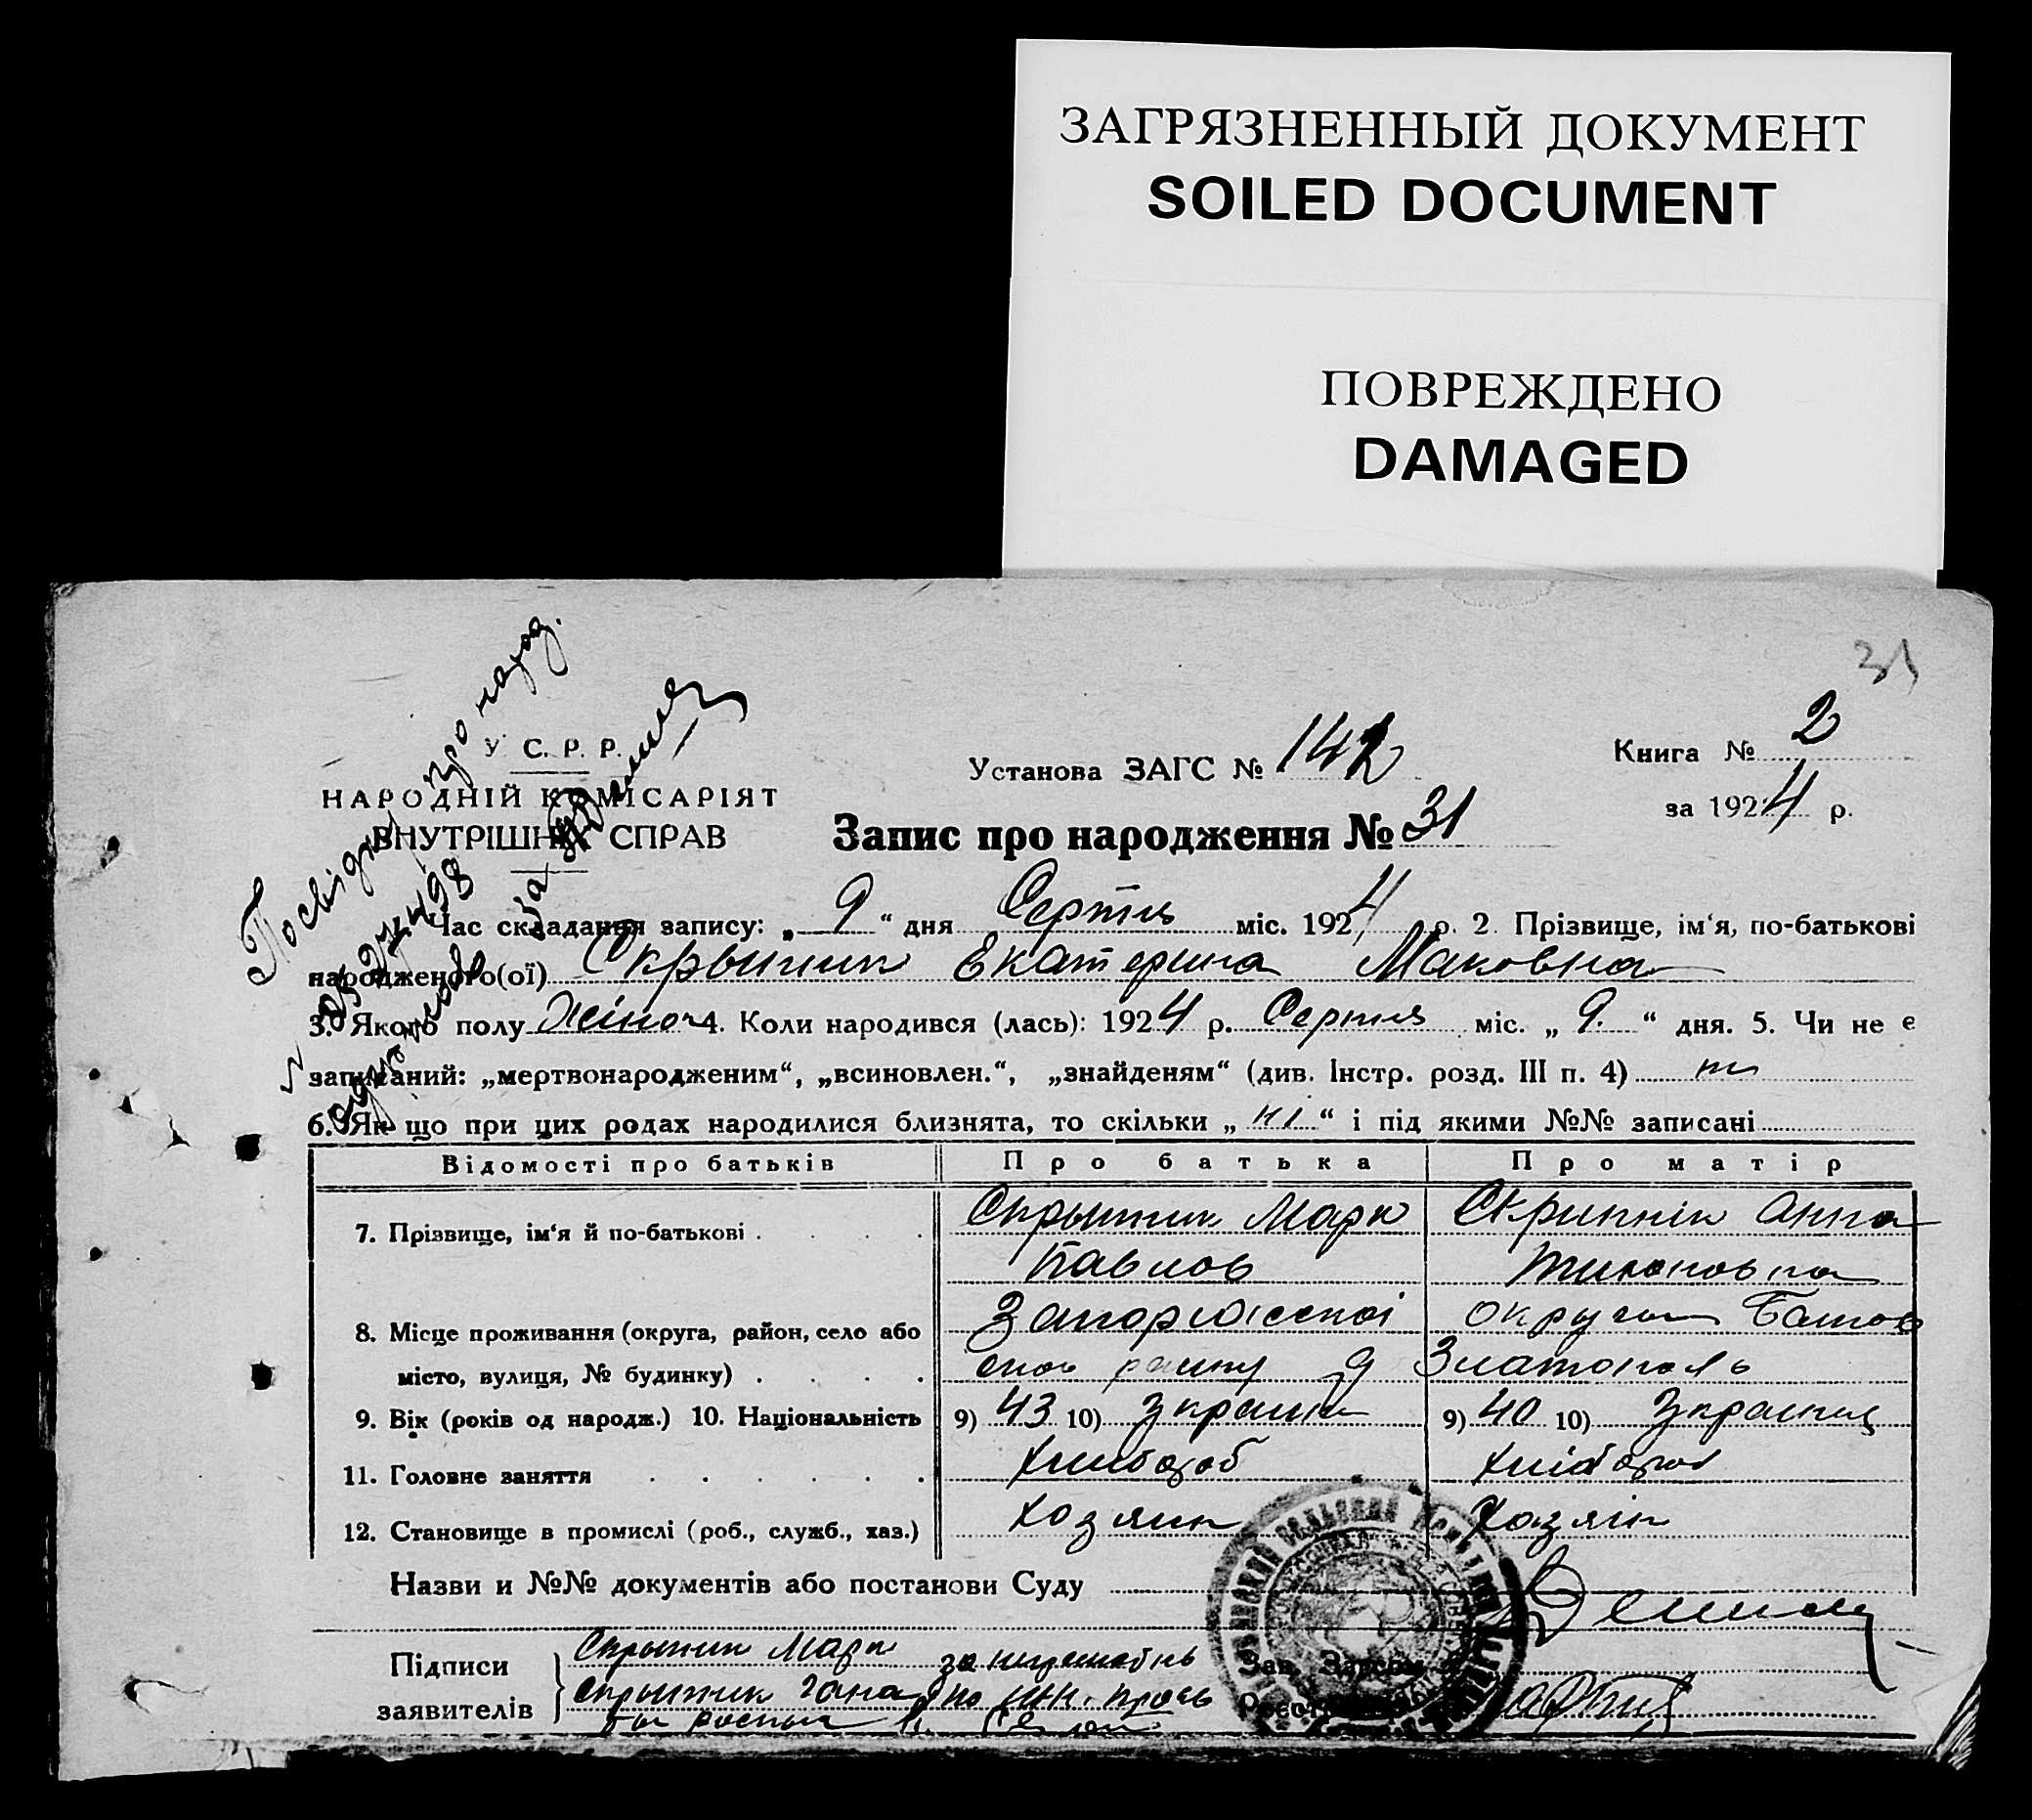 ЗАГРЯЗНЕННЫЙ ДОКУМЕНТ
SOILED DOCUMENT
ПОВРЕЖДЕНО
DAMAGED
31
У. С. Р. Р.
НАРОДНІЙ КОМІСАРІЯТ
ВНУТРІШНІХ СПРАВ
про народ.
Установа ЗАГС № 142
Книга № 2
за 1924 р.
Запис про народження № 31
Час складання запису: „ 9 “ дня Серпня міс. 1924 р. 2. Прізвище, ім‘я, по-батькові
народженого(ої) Скрыпник Екатерина Маковна
3. Якого полу Жіноч 4. Коли народився (лась): 1924 р. Серпня міс. „ 9. “ дня. 5. Чи не є
записаний: „мертвонародженим“, „всиновлен.“, „знайденям“ (див. Інстр. розд. III п. 4) ні
6. Як що при цих родах народилися близнята, то скільки „ ні “ і під якими №№ записані
Відомості про батьків Про батька Про матір
7. Прізвище, ім‘я й по-батькові . . . . Скрыпник Марк Скрипнік Анна
Павлов Тихоновна
8. Місце проживання (округа, район, село або Запоріжскоі округи
місто, вулиця, № будинку) . . . . Златополь
9. Вік (років од народж.) 10. Національність 9) 43 10) Украин 9) 40 10) Украинц
11. Головне заняття . . . . . . Хлибороб
12. Становище в промислі (роб., служб., хаз.) Хозяин Хозяін
Назви и №№ документів або постанови Суду
Підписи Скрыпник Марк
заявителів Скрыпник
Зав. Загсом